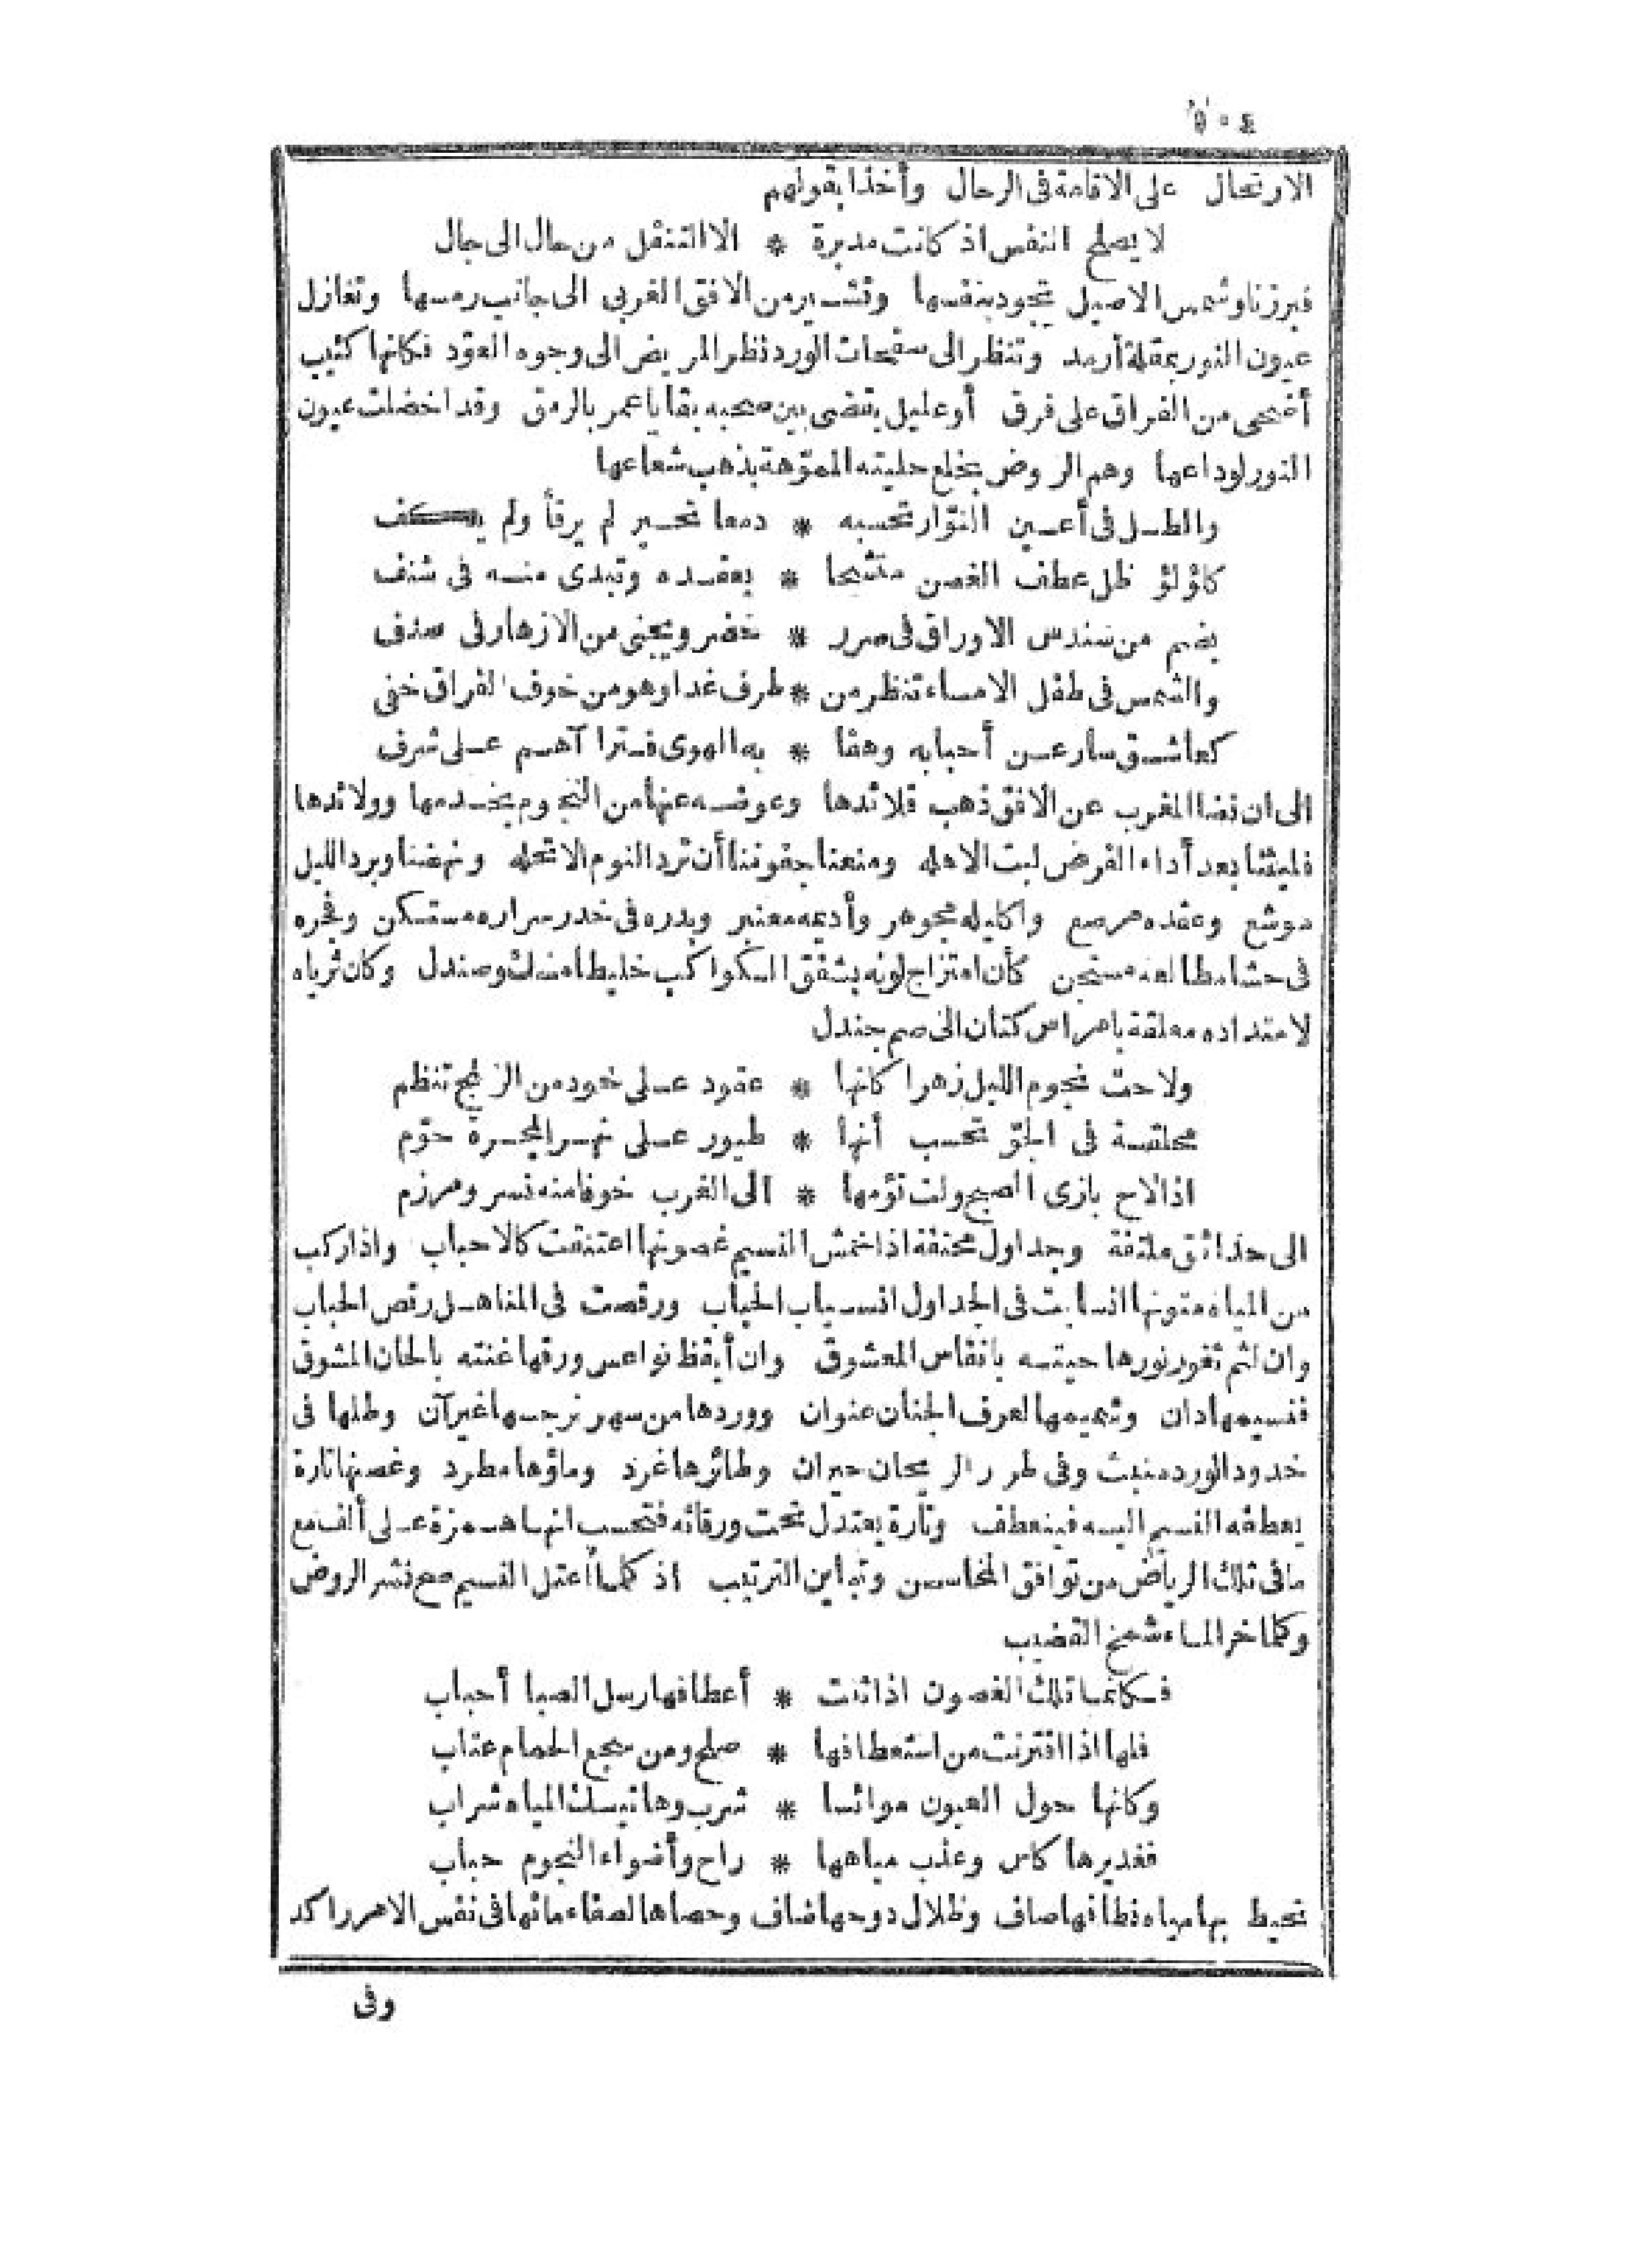 الارتحال على الاقامة فى الرحال وأخذا بقولهم
لا يصلح النفس اذ كانت مدبرة * الا التنقل من حال الى حال
فبرزنا وشمس الاصيل تجود بنفسها وتشير من الافق الغربى الى جانب رمسها وتغازل
عيون النور بمقلة أرمد وتنظر الى صفحات الورد نظر المريض الى وجوه العوّد فكانها كئيب
أضحى من الفراق على فرق أو عليل يقضى بين صحبه بقايا عمر بالرمق وقد اخضلت عيون
النور لوداعها وهم الروض بخلع حليته المموّهة بذهب شعاعها
والطل فى أعين النوّار تحسبه * دمعا تحير لم يرقأ ولم يكف
كاؤلؤ ظل عطف الغصن متشحا * بعقده وتبدى منه فى شنف
يضم من سندس الاوراق فى صرر * خضر ويجنى من الازهار فى صدف
والشمس فى طفل الامساء تنظر من * طرف غدا وهو من خوف الفراق خفى
كعاشق سار عن أحبابه وهفا * به الهوى فترا آهم على شرف
الى ان نضا المغرب عن الافق ذهب قلائدها وعوضه عنها من النجوم بخدمها وولائدها
فلبثنا بعد أداء الفرض لبث الاهله ومنعنا جفوننا أن ترد النوم الا تحله ونهضنا وبرد الليل
موشع وعقده مرصع واكليله مجوهر وأديمه معنبر وبدره فى خدر سراره مستكن وفجره
فى حشا مطالعه مستجن كأن امتزاج لونه بشفق الكواكب خليطا مسك وصندل وكان ثرياه
لامتداده معلقة بامراس كتان الى صم جندل
ولاحت نجوم الليل زهرا كانها * عقود على خود من الزنج تنظم
محلقة فى الجوّ تحسب أنها * طيور على نهر المجرة حوّم
اذا لاح بازى الصبح ولت تؤمها * الى الغرب خوفا منه نسر ومرزم
الى حدائق ملتفة وجداول محتفة اذا خمش النسيم غصونها اعتنقت كالاحباب واذا ركب
من المياه متونها انسابت فى الجداول انسياب الحباب ورقصت فى المناهل رقص الحباب
وان لثم ثغور نورها حيته بانفاس المعشوق وان أيقظ نواعس ورقها غنته بالحان المشوق
فنسيمها دان وشميمها لعرف الجنان عنوان ووردها من سهر نرجسها غيران وطلها فى
خدود الورد منبث وفى طرر الريحان حيران وطائرها غرد وماؤها مطرد وغصنها تارة
يعطفه النسيم اليه فينعطف وتارة يعتدل تحت ورقائه فتحسب انها همزة على ألف مع
ما فى تلك الرياض من توافق المحاسن وتباين الترتيب اذ كلما اعتل النسيم صح نشر الروض
وكلما خر الماء شمخ القضيب
فكانما تلك الغصون اذا ثنت * أعطافها رسل الصبا أحباب
فلها اذا افترنت من استعطافها * صلح ومن سجع الحمام عتاب
وكانها حول العيون موائسا * شرب وهاتيك المياه شراب
فغديرها كاس وعذب مياهها * راح وأضواء النجوم حباب
تحيط بها مياه نطافها صاف وظلال دوحها ضاف وحصاها لصفاء مائها فى نفس الامر راكد
وفى